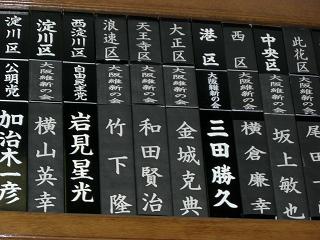 此花区 大阪維新の会 尾田一
中央区 大阪維新の会 坂上敏也
西区 大阪維新の会 横倉廉幸
港区 大阪維新の会 三田勝久
大正区 大阪維新の会 金城克典
天王寺区 大阪維新の会 和田賢治
浪速区 大阪維新の会 竹下隆
西淀川区 自由民主党 岩見星光
淀川区 大阪維新の会 横山英幸
淀川区 公明党 加治木一彦